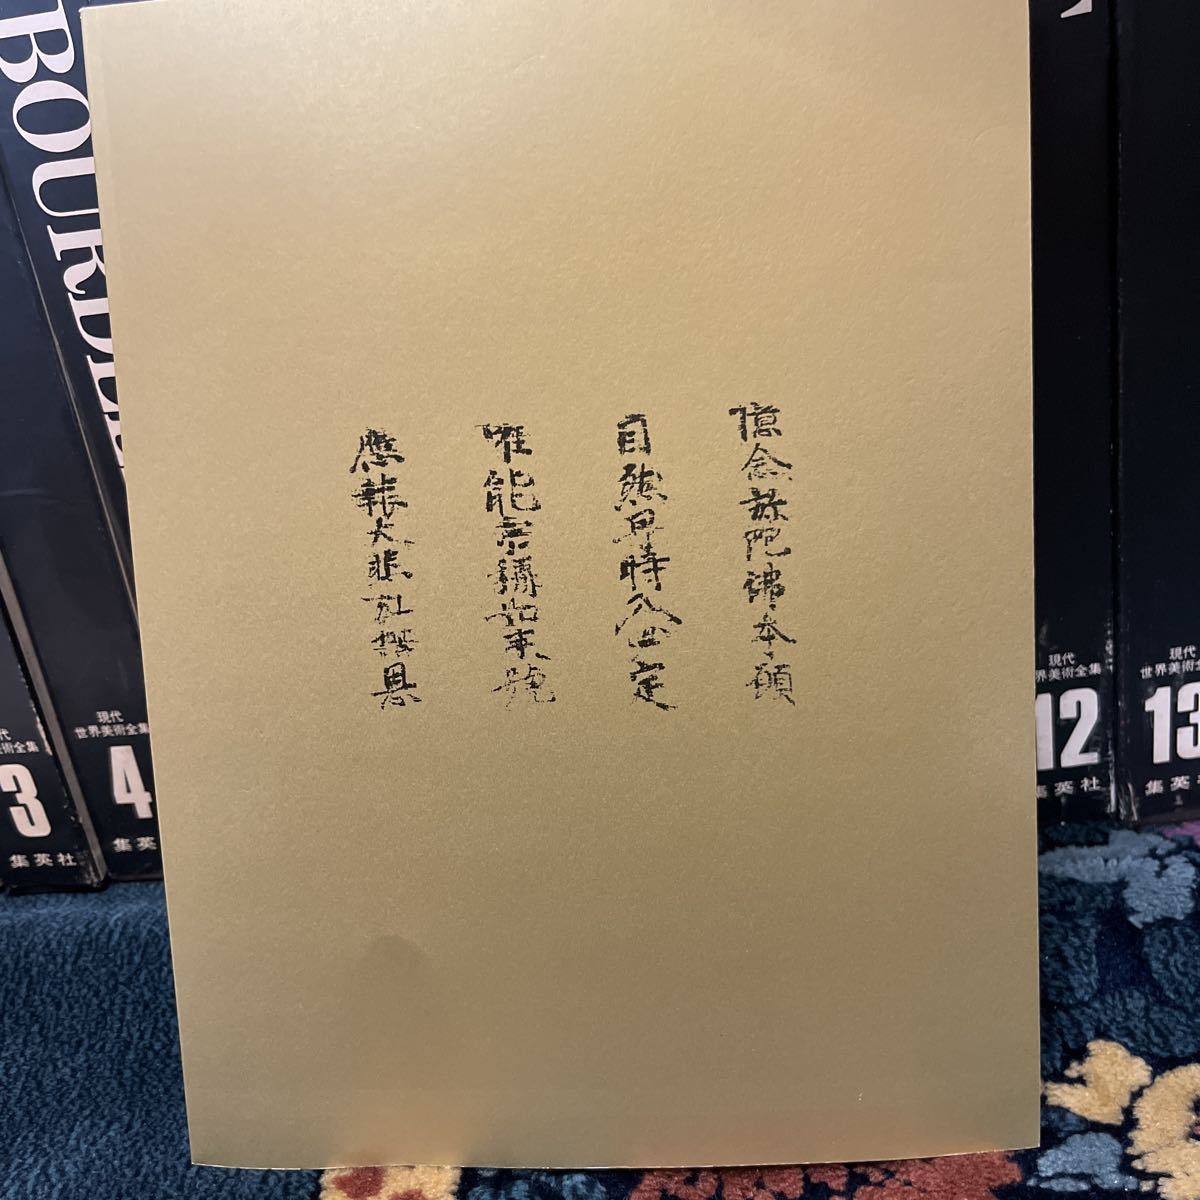 BOURDEL
憶念弥陀佛本願
自然即時入必定
唯能常稱如来號
應報大悲弘誓恩
代
術全集
3
集英社
現代
世界美術全集
4
集英
現代
世界美術全集
12
英社
現代
世界美術全集
13
集英